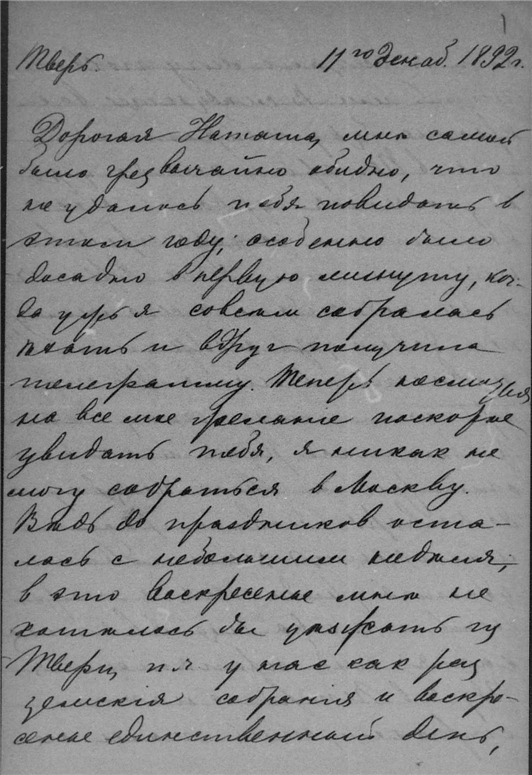 1
Тверь. 11го Декаб. 1892 г.
Дорогая Наташа, мнѣ самой
было чрезвычайно обидно, что
не удалось тебя повидать в
этом году; особенно было
досадно в первую минуту, ког-
да уж я совсѣм собралась
ѣхать и вдруг получила
телеграмму. Теперь несмотря
на все мое желанiе поскорѣе
увидать тебя, я никак не
могу собраться в Москву.
Вѣдь до праздников оста-
лось с небольшим недѣля;
в это воскресенье мнѣ не
хотѣлось бы уѣзжать из
Твери, т. к. у нас как раз
земскiя собранiя и воскре-
сенье единственный день,